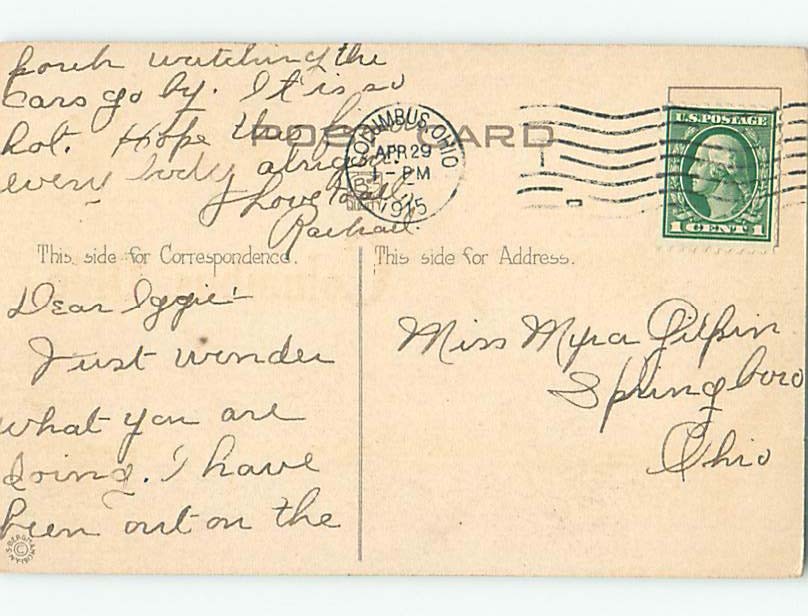 porch watching the
cars go by. It is so
hot. Hope this finds
every body alright.
Love to all,
Rachael.
POST CARD
COLUMBUS, OHIO
APR 29
1 - PM
1915
U.S. POSTAGE
1 CENT 1
This side for Correspondence.
This side for Address.
Dear Iggie:-
Just wonder
what you are
doing. I have
been out on the
Miss Myra Gilpin
Springboro
Ohio